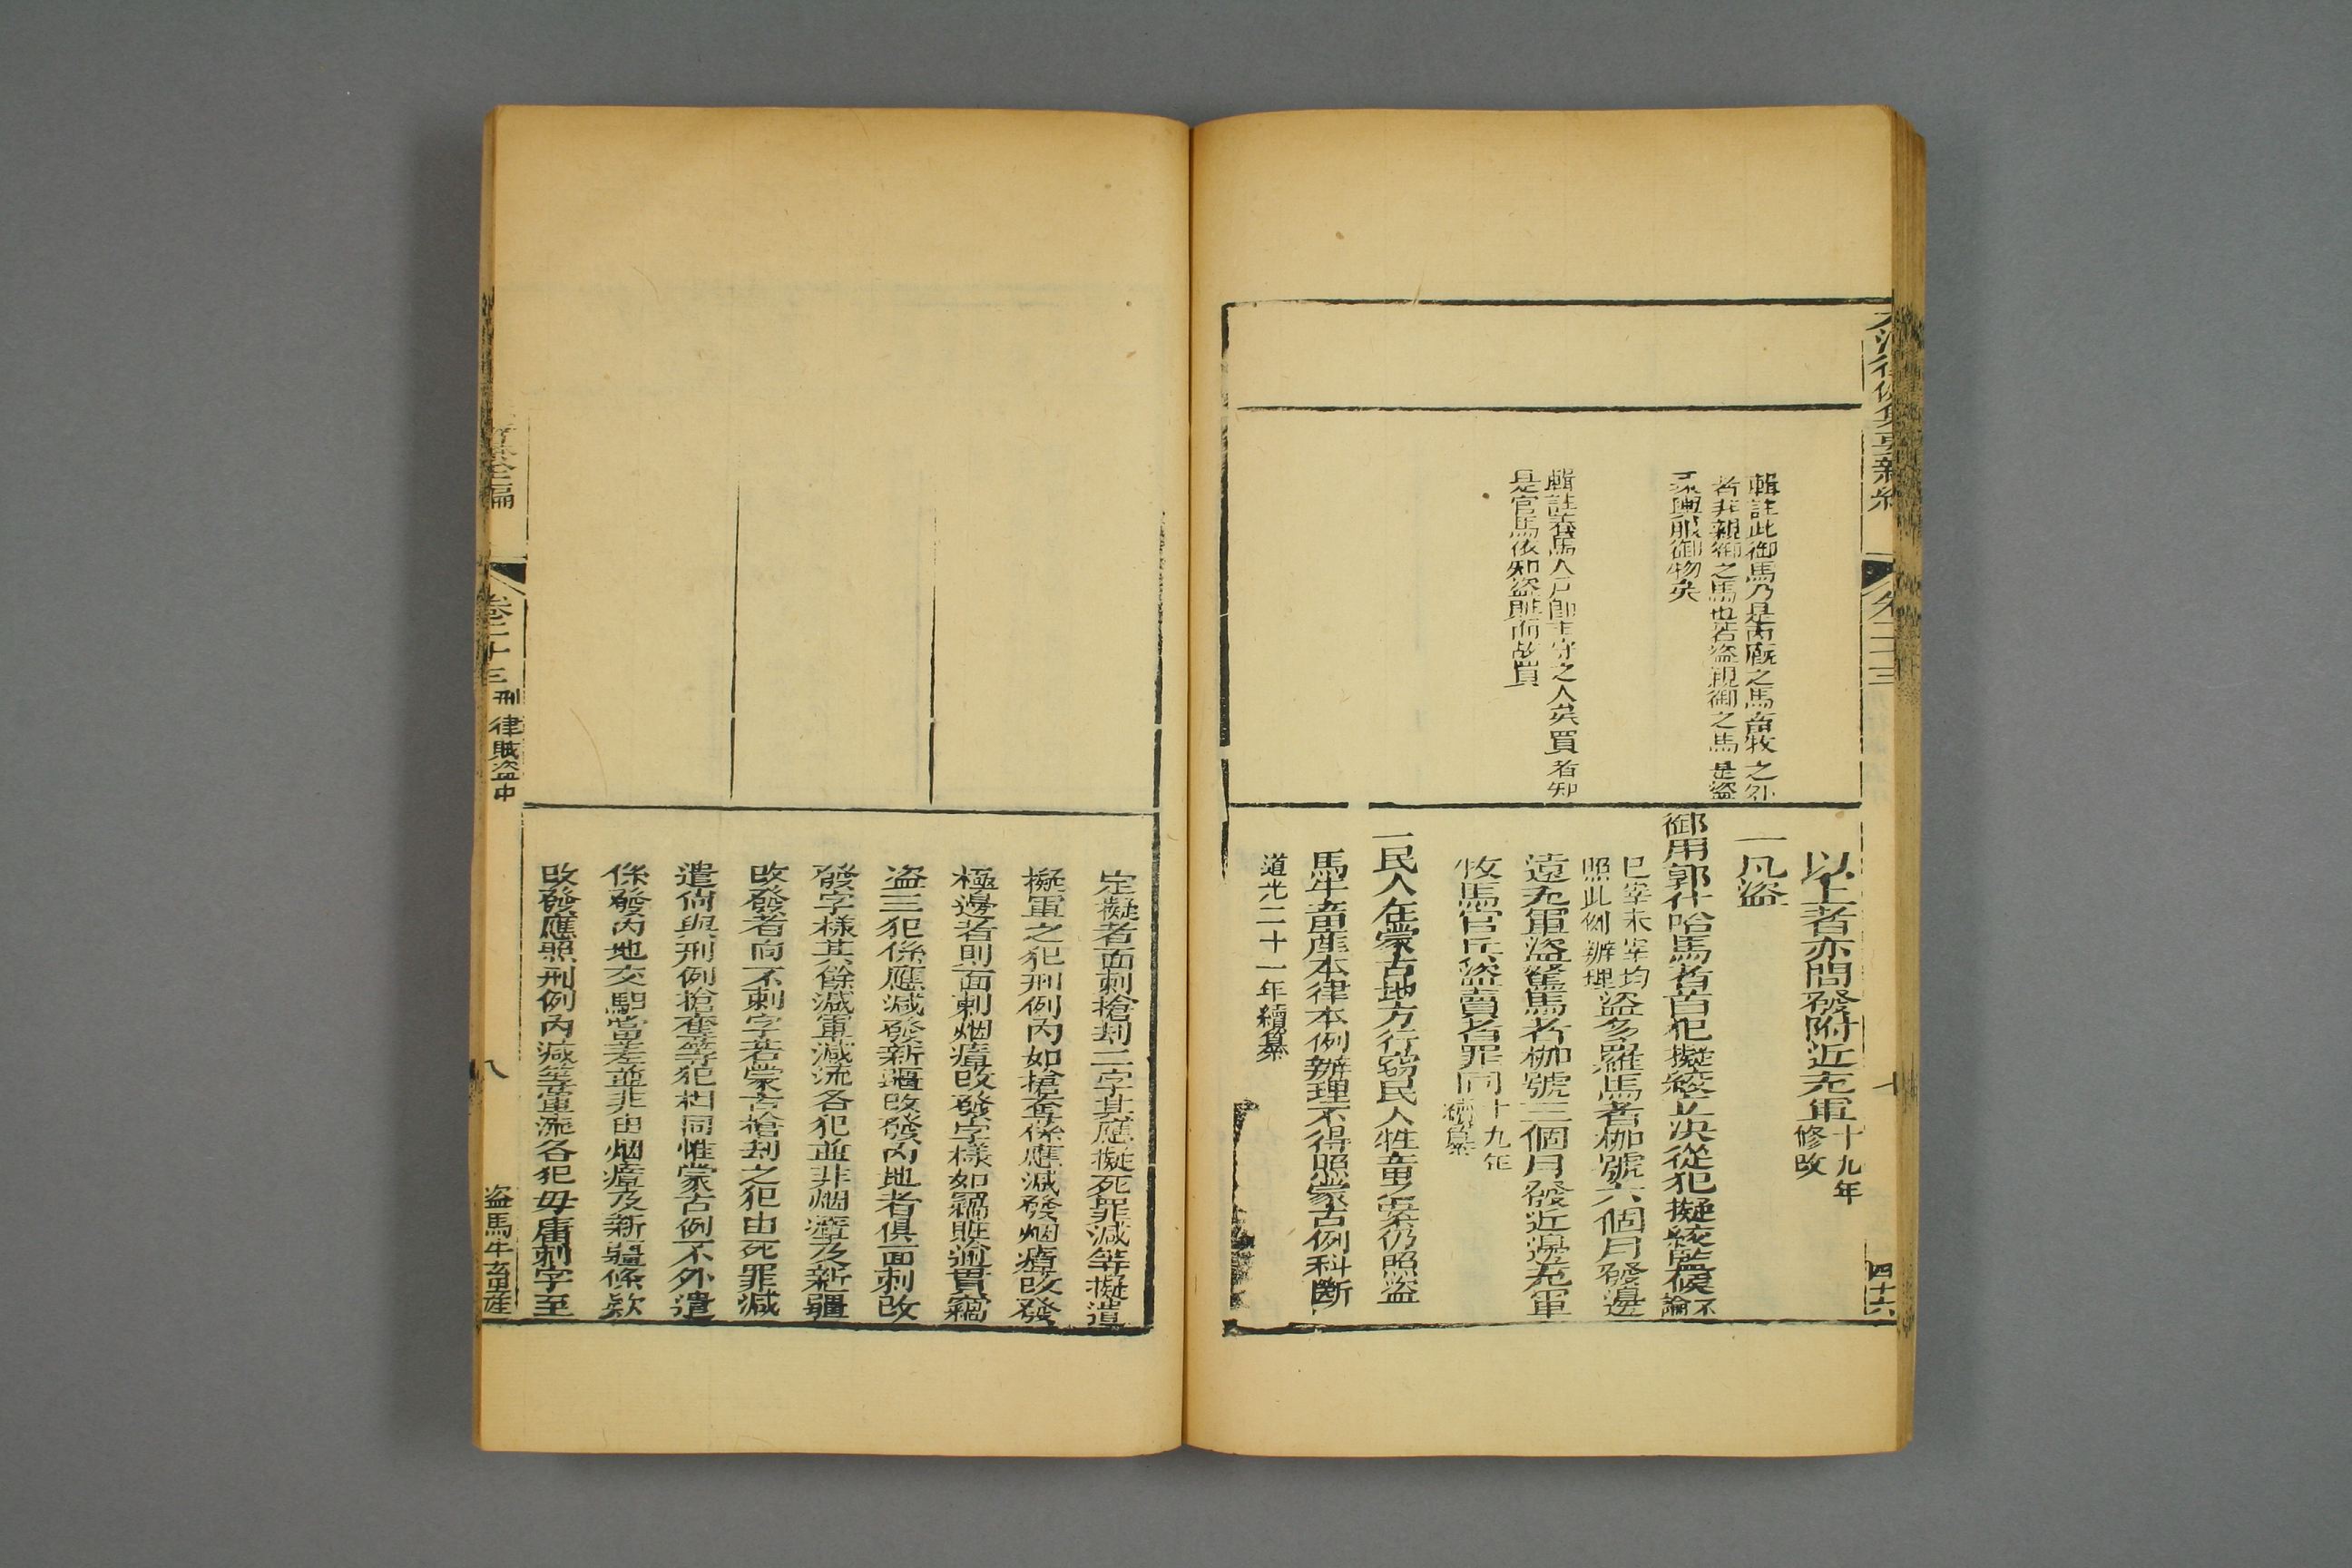 大清律例彙要新編
卷二十三
四十六
輯註此御馬乃是內廐之馬畜牧之外
者非親御之馬也若盜親御之馬是盜
乘輿服御物矣
輯註養馬人戶卽主守之人矣買者知
是官馬依知盜賍而故買
以上者亦問發附近充軍十九年
修改
一凡盜
御用郭什哈馬者首犯擬絞立決從犯擬絞監候不
論
已宰未宰均
照此例辦理盜多羅馬者枷號六個月發邊
遠充軍盜駑馬者枷號三個月發近邊充軍
牧馬官兵盜賣者罪同十九年
續纂
一民人在蒙古地方行竊民人牲畜之案仍照盜
馬牛畜產本律本例辦理不得照蒙古例科斷
道光二十一年續纂
定擬者面刺搶刼二字其應擬死罪減等擬遣
擬軍之犯刑例內如搶奪係應減發烟瘴改發
極邊者則面刺烟瘴改發字樣如竊賍逾貫竊
盜三犯係應減發新疆改發內地者俱面刺改
發字樣其餘減軍減流各犯並非烟瘴及新疆
改發者向不刺字若蒙古搶刼之犯由死罪減
遣尙與刑例搶奪等犯相同惟蒙古例不外遣
係發內地交馹當差並非由烟瘴及新疆條款
改發應照刑例內減等軍流各犯毋庸刺字至
卷二十三
刑律賊盜中
八
盜馬牛畜產